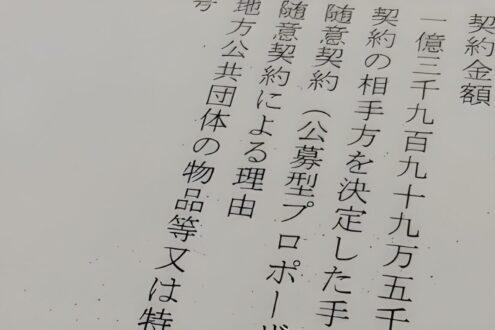 契約金額
一億三千九百九十九万五千
契約の相手方を決定した手
随意契約（公募型プロポーザ
随意契約による理由
地方公共団体の物品等又は特
号